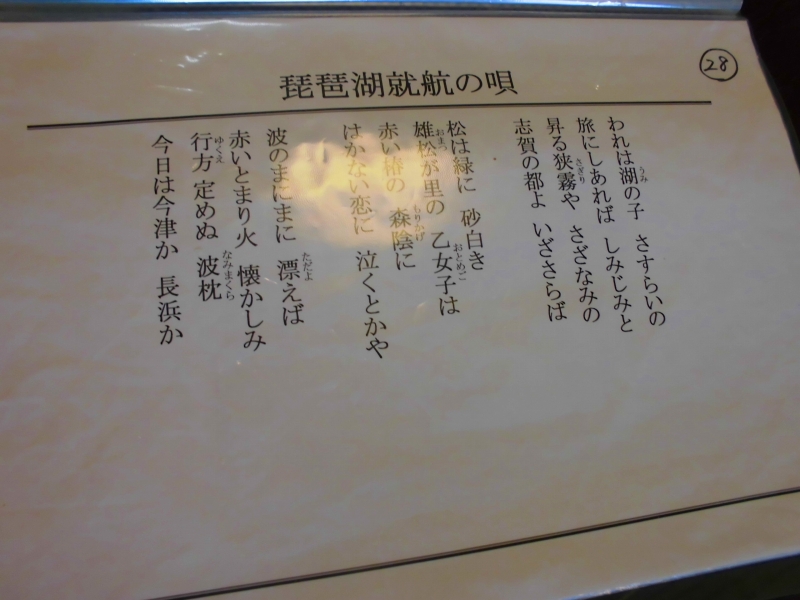 28
琵琶湖就航の唄
われは湖の子 さすらいの
旅にしあれば しみじみと
昇る狭霧や さざなみの
志賀の都よ いざさらば
松は緑に 砂白き
雄松が里の 乙女子は
赤い椿の 森陰に
はかない恋に 泣くとかや
波のまにまに 漂えば
赤いとまり火 懐かしみ
行方定めぬ 波枕
今日は今津か 長浜か